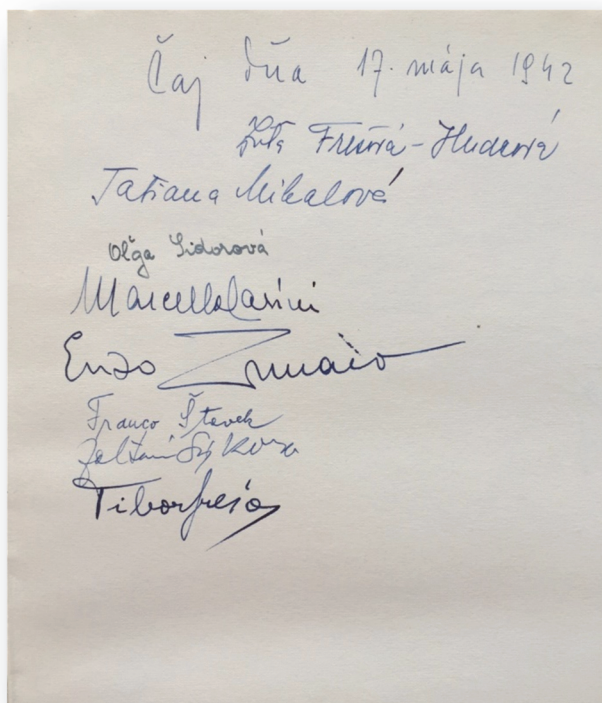 Čaj dňa 17. mája 1942
Zita Frešová-Hudcová
Tatiana Mikalová
Oľga Sidorová
Marcello Casini
Enzo
Franco Števek
Zoltán
Tibor Frešo